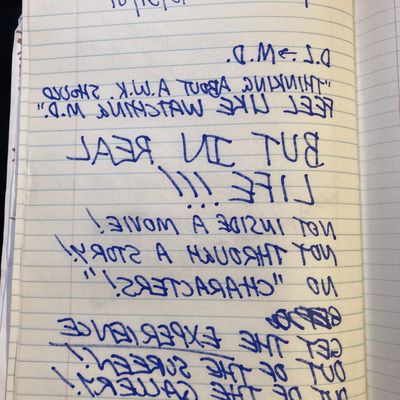 D.L. → M.D.
"THINKING ABOUT A.W.K. SHOULD
FEEL LIKE WATCHING M.D."
BUT IN REAL
LIFE!!!
NOT INSIDE A MOVIE!
NOT THROUGH A STORY!
NO "CHARACTERS!"
GET THE EXPERIENCE
OUT OF THE SCREEN!!
OUT OF THE GALLERY!